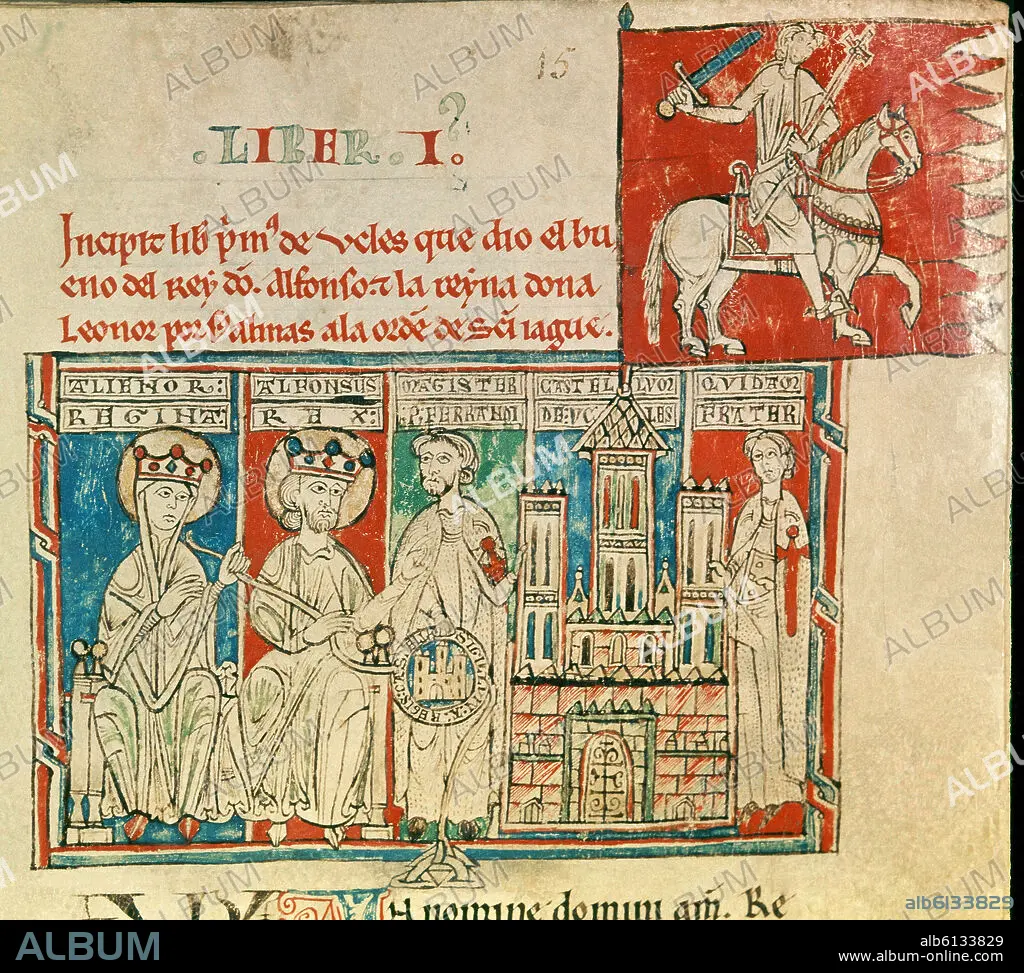 15
.LIBER.I.
Incipit lib p̄mº de Vcles que dio el bu
eno del Rey dō. Alfonso ⁊ la reyna dona
Leonor por Salmas a la ordē de Sc̄i iague.
ALIENOR:
REGINA:
ALFONSUS
REX:
MAGISTER
P. FERRANDI
CASTELLVM
DE VCLES
QVIDAM
FRATER
In nomine domini am̄. Re
ALBUM
alb6133829
alb6133829
www.album-online.com